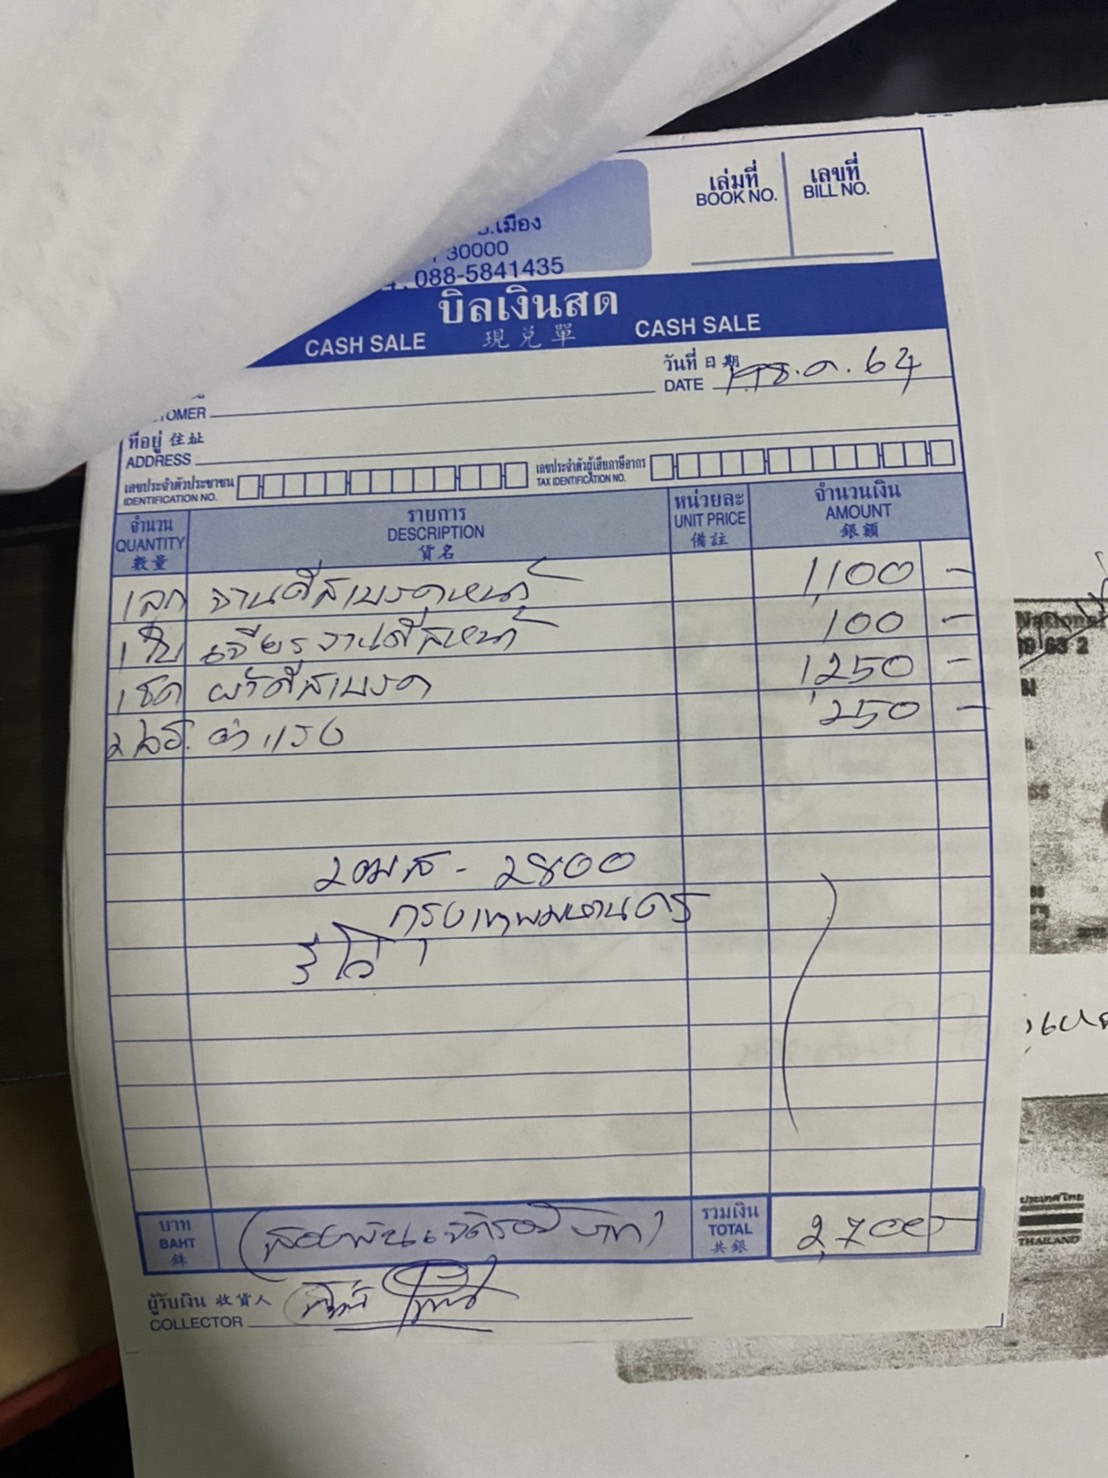 อ.เมือง
30000
088-5841435
เล่มที่ เลขที่
BOOK NO. BILL NO.
บิลเงินสด
CASH SALE 現兌單 CASH SALE
วันที่ 日期
DATE ต.ค. 64
TOMER
ที่อยู่ 住址
ADDRESS
เลขประจำตัวประชาชน เลขประจำตัวผู้เสียภาษีอากร
IDENTIFICATION NO. TAX IDENTIFICATION NO.
จำนวน รายการ หน่วยละ จำนวนเงิน
QUANTITY DESCRIPTION UNIT PRICE AMOUNT
數量 貨名 備註 銀額
1 ลูก จานดิสเบรคหน้า 1,100 -
1 ใบ เจียรจานดิสหน้า 100 -
1 ชุด ผ้าดิสเบรค 1,250 -
ค่าแรง 250 -
2ฒส - 2800
กรุงเทพมหานคร
รีโว่
บาท รวมเงิน
BAHT (สองพันเจ็ดร้อยบาท) TOTAL 2,700
銖 共銀
ผู้รับเงิน 收貨人
COLLECTOR
National
ประเทศไทย
THAILAND